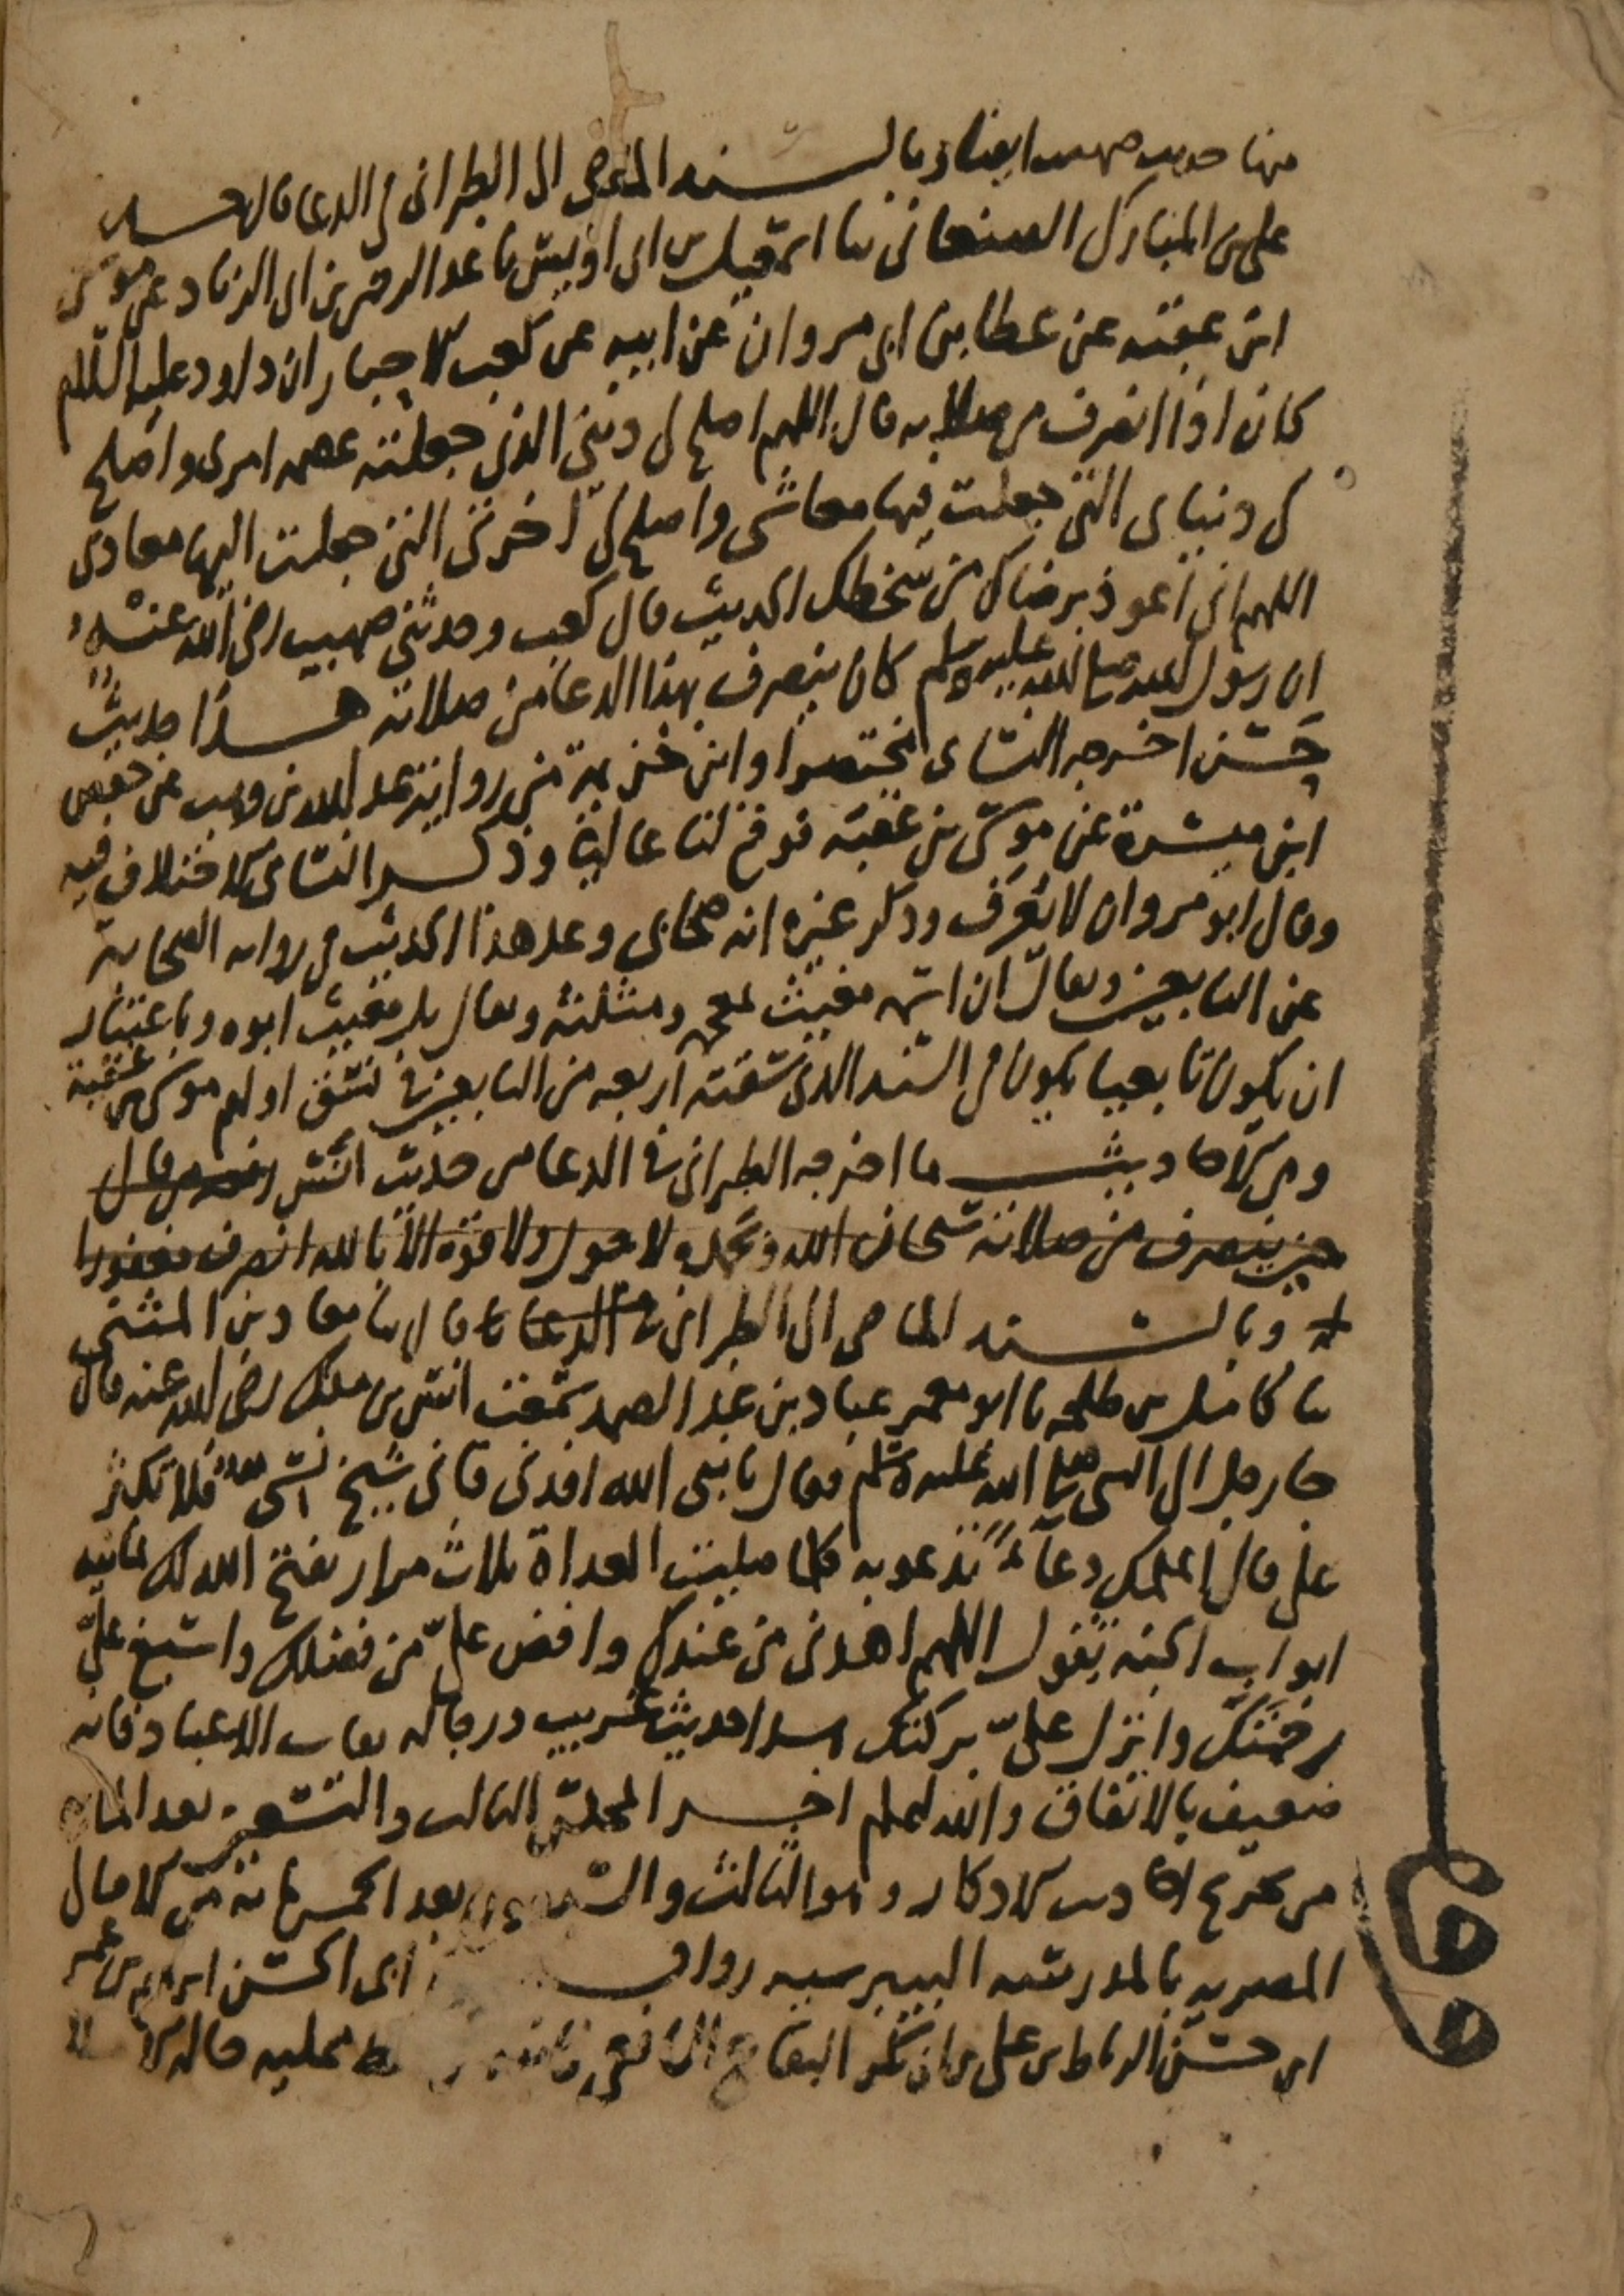 منها حديث صهيب ايضا وبالسند الماضي الى الطبراني في الدعا قال حدثنا
علي بن المبارك الصنعاني ثنا اسمعيل بن ابي اويس ثنا عبد الرحمن بن ابي الزناد عن موسى
ابن عقبة عن عطا بن ابي مروان عن ابيه عن كعب الاحبار ان داود عليه السلام
كان اذا انصرف من صلاته قال اللهم اصلح لي ديني الذي جعلته عصمة امري واصلح
لي دنياي التي جعلت فيها معاشي واصلح لي اخرتي التي جعلت اليها معادي
اللهم اني اعوذ برضاك من سخطك الحديث قال كعب وحدثني صهيب رضي الله عنه
ان رسول الله صلى الله عليه وسلم كان ينصرف بهذا الدعا من صلاته هذا حديث
حسن اخرجه النساي مختصرا وابن خزيمة من رواية عبد الله بن وهب عن حفص
ابن ميسرة عن موسى بن عقبة فوقع لنا عاليا وذكر النساي الاختلاف فيه
وقال ابو مروان لا يعرف وذكر غيره انه صحابي وعد هذا الحديث في رواية الصحابة
عن التابعين ويقال ان اسمه مغيث بمعجمة ومثلثة ويقال بل مغيث ابوه وباعتبار
ان يكون تابعيا يكون في السند الذي سقته اربعة من التابعين في نسق اولهم موسى بن عقبة
ومن الاحاديث ما اخرجه الطبراني في الدعا من حديث انس رفعه من قال
حين ينصرف من صلاته سبحان الله وبحمده لا حول ولا قوة الا بالله انصرف مغفورا
له وبالسند الماضي الى الطبراني في الدعا قال ثنا معاذ بن المثنى
ثنا كامل بن طلحة ثنا ابو معمر عباد بن عبد الصمد سمعت انس بن ملك رضي الله عنه قال
جا رجل الى النبي صلى الله عليه وسلم فقال يا نبي الله افدني فاني شيخ نسي فلا تكثر
علي قال اعلمك دعاء تدعو به كلما صليت الغداة ثلاث مرار يفتح الله لك ثمانية
ابواب الجنة تقول اللهم اهدني من عندك وافض علي من فضلك واسبغ علي
رحمتك وانزل علي بركتك هذا حديث غريب ورجاله ثقات الا عباد فانه
ضعيف بالاتفاق والله اعلم اخر المجلس الثالث والتسعين بعد الماية
من تخريج احاديث الاذكار وهو الثالث والتسعون بعد الخمس ماية من الامالي
المصرية بالمدرسة البيبرسية رواية ابي الحسن ابرهيم بن عمر
ابن حسن الرباط بن علي بن ابي بكر البقاعي الشافعي عليه قاله